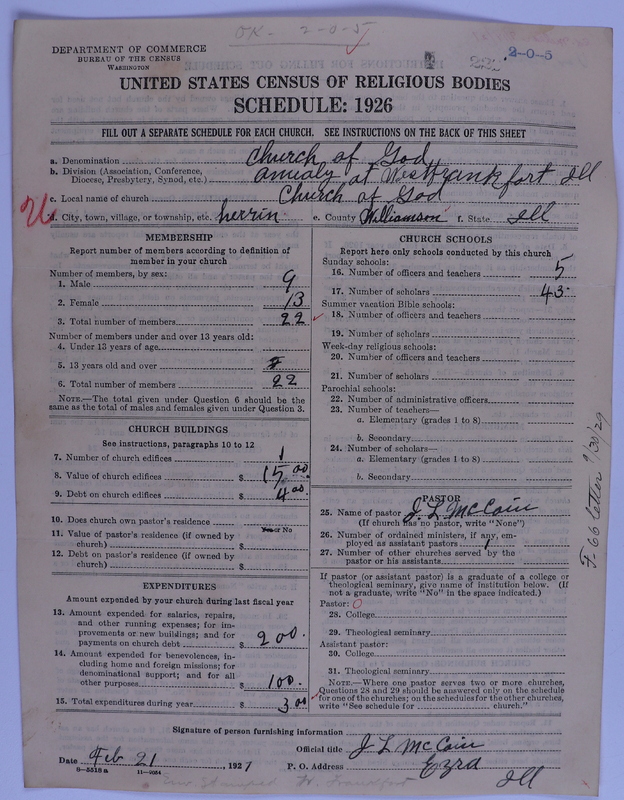 OK- 2-0-5
DEPARTMENT OF COMMERCE
BUREAU OF THE CENSUS
WASHINGTON
2-0-5
UNITED STATES CENSUS OF RELIGIOUS BODIES
SCHEDULE: 1926
FILL OUT A SEPARATE SCHEDULE FOR EACH CHURCH. SEE INSTRUCTIONS ON THE BACK OF THIS SHEET
a. Denomination Church of God
b. Division (Association, Conference, Diocese, Presbytery, Synod, etc.) annualy at West frankfort Ill
c. Local name of church Church of God
d. City, town, village, or township, etc. herrin e. County Williamson f. State Ill
MEMBERSHIP
Report number of members according to definition of
member in your church
Number of members, by sex:
1. Male 9
2. Female 13
3. Total number of members 22
Number of members under and over 13 years old:
4. Under 13 years of age
5. 13 years old and over
6. Total number of members 22
NOTE.—The total given under Question 6 should be
same as the total of males and females given under Question 3.
CHURCH BUILDINGS
See instructions, paragraphs 10 to 12
7. Number of church edifices 1
8. Value of church edifices $ 1500
9. Debt on church edifices $ 400
10. Does church own pastor's residence
Yes or No
11. Value of pastor's residence (if owned by
church) $
12. Debt on pastor's residence (if owned by
church) $
EXPENDITURES
Amount expended by your church during last fiscal year
13. Amount expended for salaries, repairs,
and other running expenses; for im-
provements or new buildings; and for
payments on church debt $ 200.
14. Amount expended for benevolences, in-
cluding home and foreign missions; for
denominational support; and for all
other purposes $ 100.
15. Total expenditures during year $ 300
CHURCH SCHOOLS
Report here only schools conducted by this church
Sunday schools:
16. Number of officers and teachers 5
17. Number of scholars 43
Summer vacation Bible schools:
18. Number of officers and teachers
19. Number of scholars
Week-day religious schools:
20. Number of officers and teachers
21. Number of scholars
Parochial schools:
22. Number of administrative officers
23. Number of teachers—
a. Elementary (grades 1 to 8)
b. Secondary
24. Number of scholars—
a. Elementary (grades 1 to 8)
b. Secondary
PASTOR
25. Name of pastor J L McCain
(If church has no pastor, write "None")
26. Number of ordained ministers, if any, em-
ployed as assistant pastors 1
27. Number of other churches served by the
pastor or his assistants
If pastor (or assistant pastor) is a graduate of a college or
theological seminary, give name of institution below. (If
not a graduate, write "No" in the space indicated.)
Pastor: O
28. College
29. Theological seminary
Assistant pastor:
30. College
31. Theological seminary
NOTE.—Where one pastor serves two or more churches,
Questions 28 and 29 should be answered only on the schedule
for one of the churches; on the schedules for the other churches,
write "See schedule for church."
F-66 letter 9/30/29
Signature of person furnishing information
Official title J L McCain
Date Feb 21, 1927 P. O. Address Ezra Ill
8-5518 a 11-9054